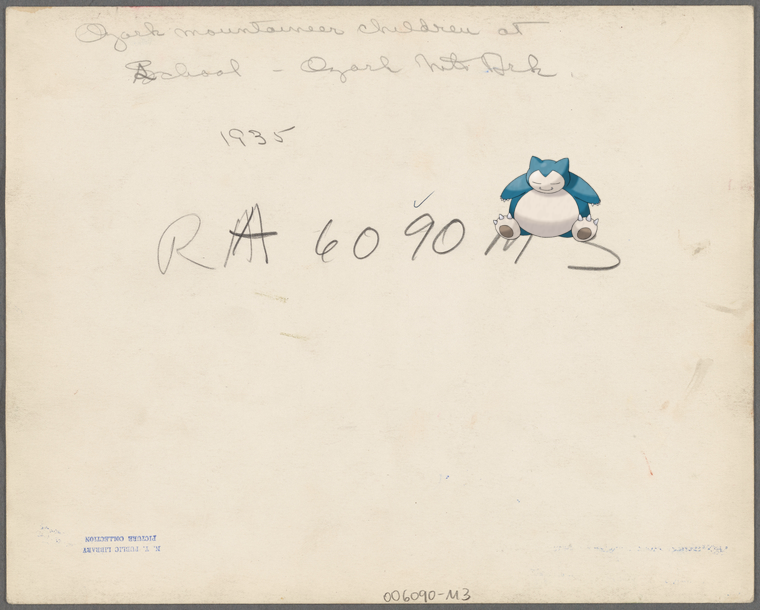 Ozark mountaineer children at
School - Ozark Mts Ark.
1935
RA 6090 M
N. Y. PUBLIC LIBRARY
PICTURE COLLECTION
006090-M3